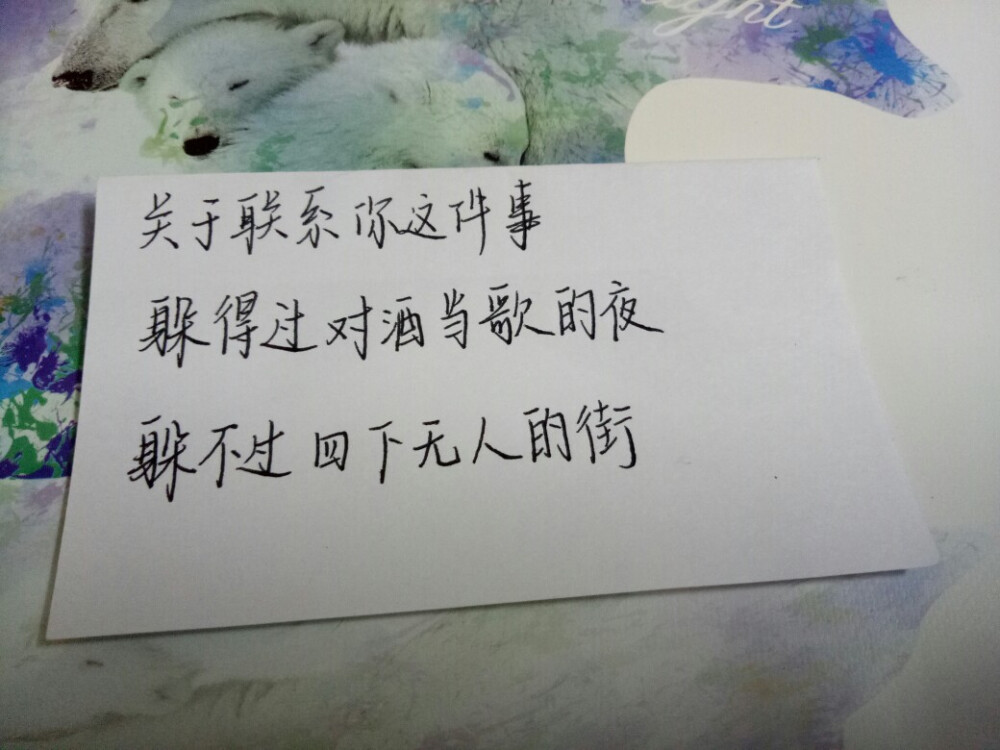 关于联系你这件事
躲得过对酒当歌的夜
躲不过四下无人的街